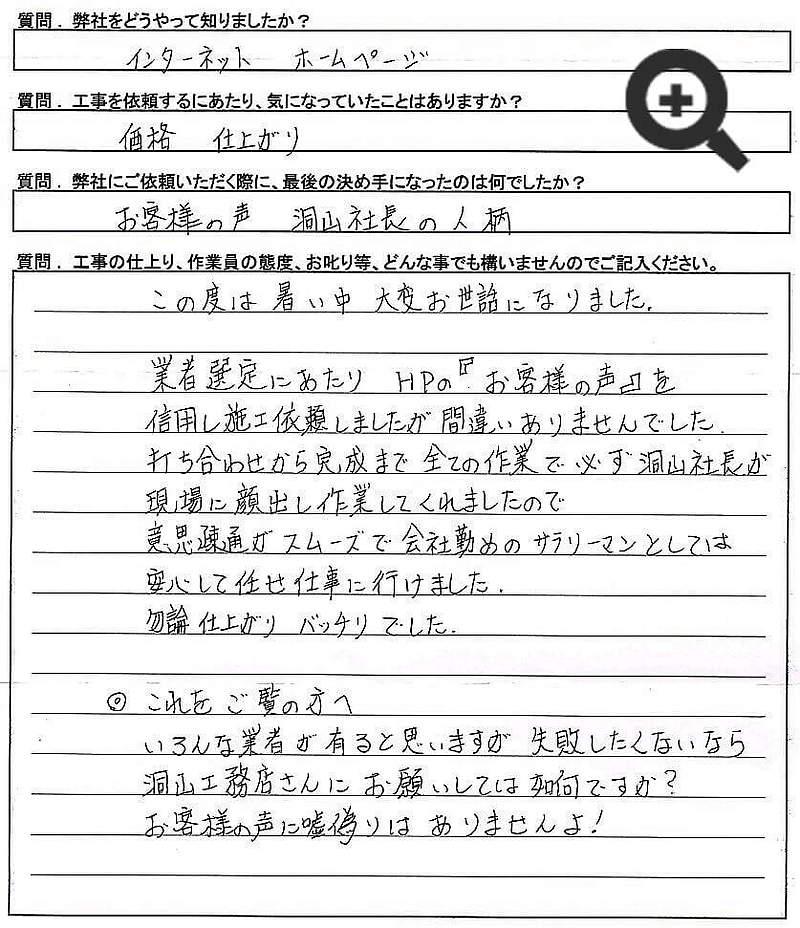 質問．弊社をどうやって知りましたか？
インターネット　ホームページ
質問．工事を依頼するにあたり、気になっていたことはありますか？
価格　仕上がり
質問．弊社にご依頼いただく際に、最後の決め手になったのは何でしたか？
お客様の声　洞山社長の人柄
質問．工事の仕上り、作業員の態度、お叱り等、どんな事でも構いませんのでご記入ください。
この度は 暑い中 大変お世話になりました.
業者選定にあたり HPの『お客様の声』を
信用し施工依頼しましたが 間違いありませんでした.
打ち合わせから完成まで 全ての作業で 必ず 洞山社長が
現場に顔出し作業してくれましたので
意思疎通が スムーズで 会社勤めの サラリーマンとしては
安心して任せ仕事に行けました.
勿論 仕上がり バッチリ でした.
◎ これを ご覧の方へ
いろんな業者が有ると思いますが 失敗したくないなら
洞山工務店さんに お願いしては 如何ですか？
お客様の声に嘘偽りは ありませんよ！